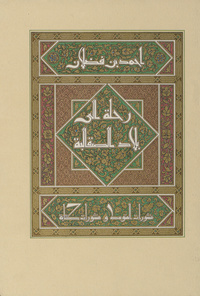 احمد بن فضلان
رحلة الى
بلاد الصقالبة